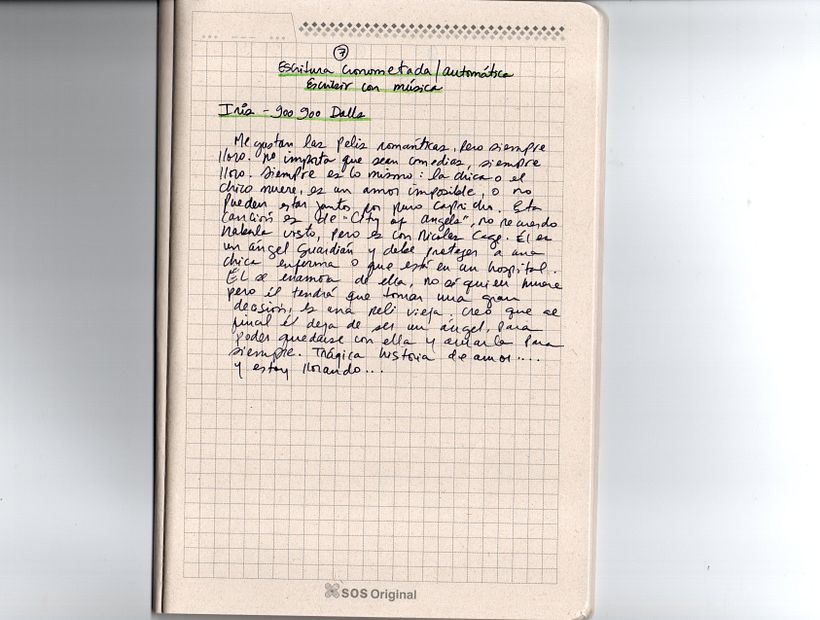 7
Escritura cronometada/automática
Escribir con música
Iris - goo goo Dalls
Me gustan las pelis románticas, pero siempre
lloro. no importa que sean comedias, siempre
lloro. Siempre es lo mismo: la chica o el
chico muere, es un amor imposible, o no
pueden estar juntos por puro capricho. Esta
canción es de "City of angels", no recuerdo
haberla visto, pero es con Nicolas Cage. Él es
un ángel Guardián y debe proteger a una
chica enferma o que está en un hospital.
Él se enamora de ella, no sé quien muere
pero él tendrá que tomar una gran
decisión, es una peli vieja. creo que al
final él deja de ser un ángel, para
poder quedarse con ella y amarla para
siempre. Trágica historia de amor....
y estoy llorando...
SOS Original